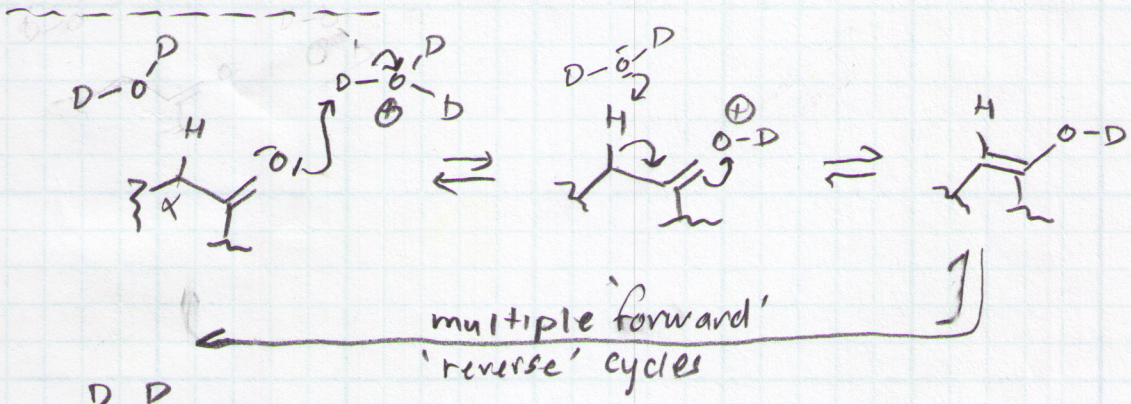 D D D
D-O D-O D-O
⊕ D H ⊕ H
H O O-D O-D
α
multiple 'forward'
'reverse' cycles
D D